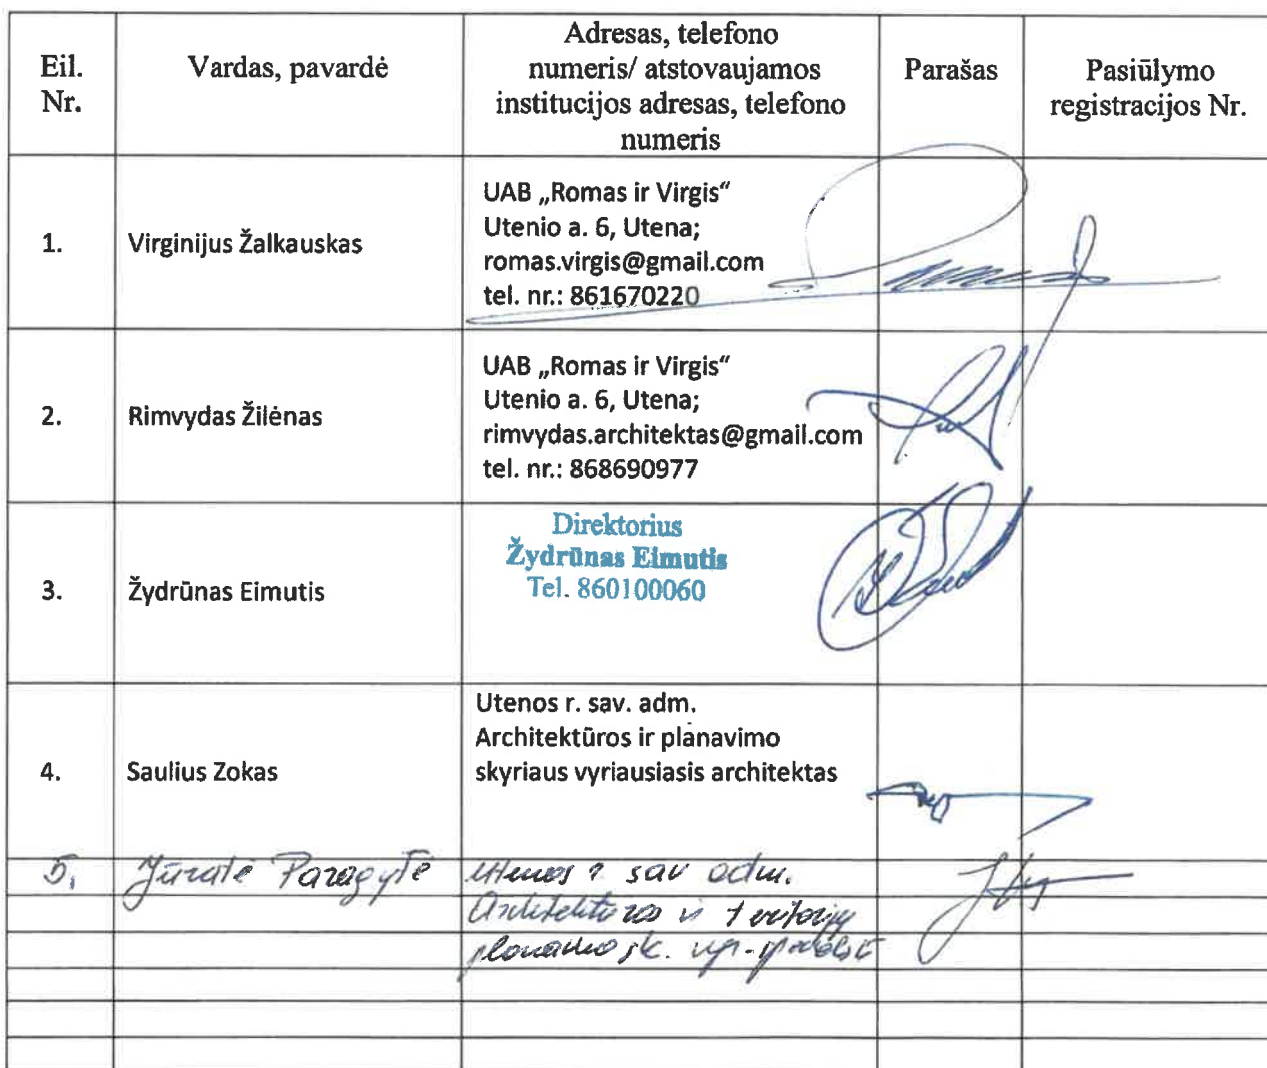 Eil.
Nr.
Vardas, pavardė
Adresas, telefono
numeris/ atstovaujamos
institucijos adresas, telefono
numeris
Parašas
Pasiūlymo
registracijos Nr.
1.
Virginijus Žalkauskas
UAB „Romas ir Virgis“
Utenio a. 6, Utena;
romas.virgis@gmail.com
tel. nr.: 861670220
2.
Rimvydas Žilėnas
UAB „Romas ir Virgis“
Utenio a. 6, Utena;
rimvydas.architektas@gmail.com
tel. nr.: 868690977
3.
Žydrūnas Eimutis
Direktorius
Žydrūnas Eimutis
Tel. 860100060
4.
Saulius Zokas
Utenos r. sav. adm.
Architektūros ir planavimo
skyriaus vyriausiasis architektas
5.
Jūratė Paragytė
Utenos r. sav adm.
Architektūros ir teritorijų
planavimo sk.